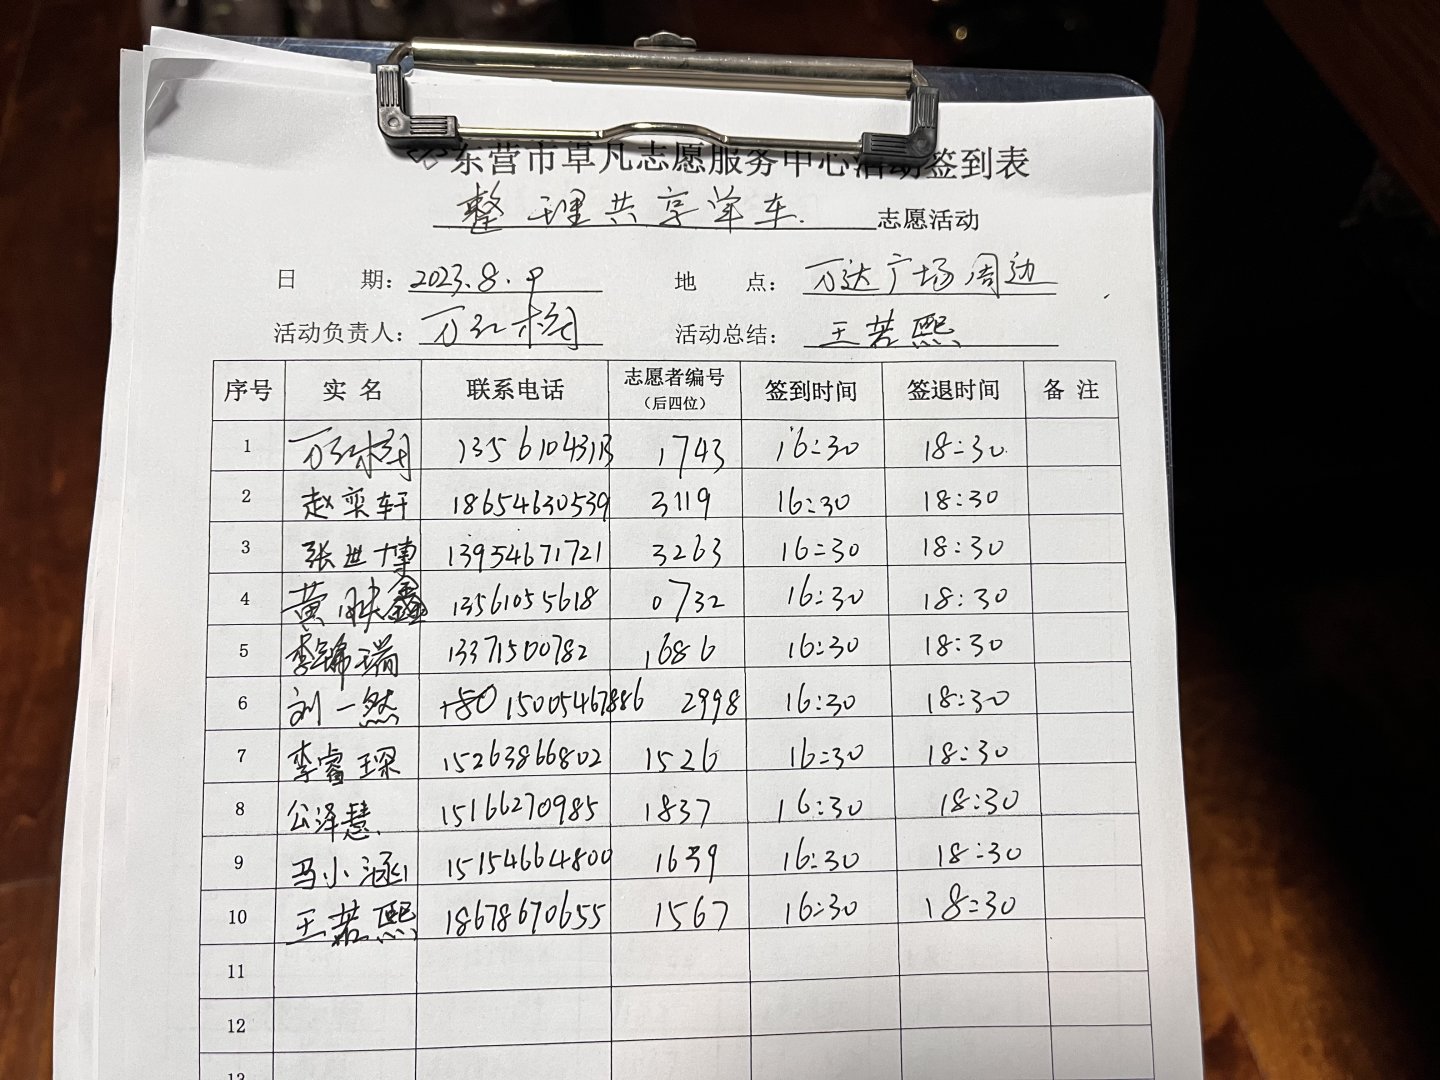 东营市卓凡志愿服务中心活动签到表
整理共享单车. 志愿活动
日 期: 2023.8.9 地 点: 万达广场周边
活动负责人: 万红梅 活动总结: 王若熙
序号 实名 联系电话 志愿者编号 签到时间 签退时间 备注
(后四位)
1 13561043113 1743 16:30 18:30
2 赵奕轩 18654630539 3119 16:30 18:30
3 张世博 13954671721 3263 16:30 18:30
4 黄映鑫 13561055618 0732 16:30 18:30
5 李锦瑞 13371500782 1686 16:30 18:30
6 刘一然 15005467886 2998 16:30 18:30
7 李睿琛 15263866802 1526 16:30 18:30
8 公泽慧 15166270985 1837 16:30 18:30
9 马小涵 15154664800 1639 16:30 18:30
10 王若熙 18678670655 1567 16:30 18:30
11
12
13